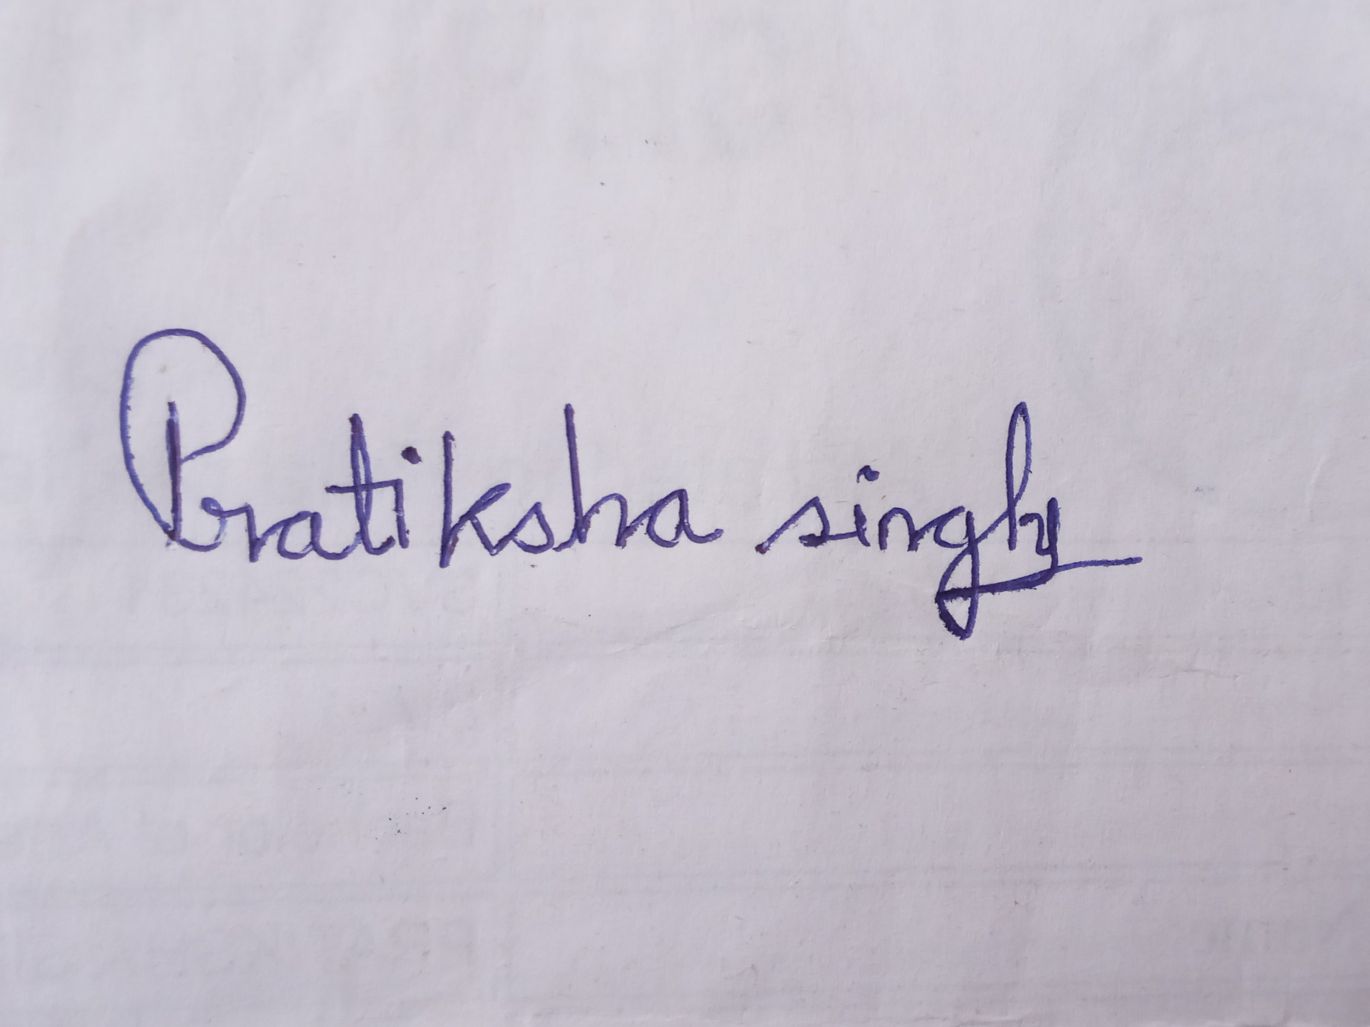 Pratiksha singh